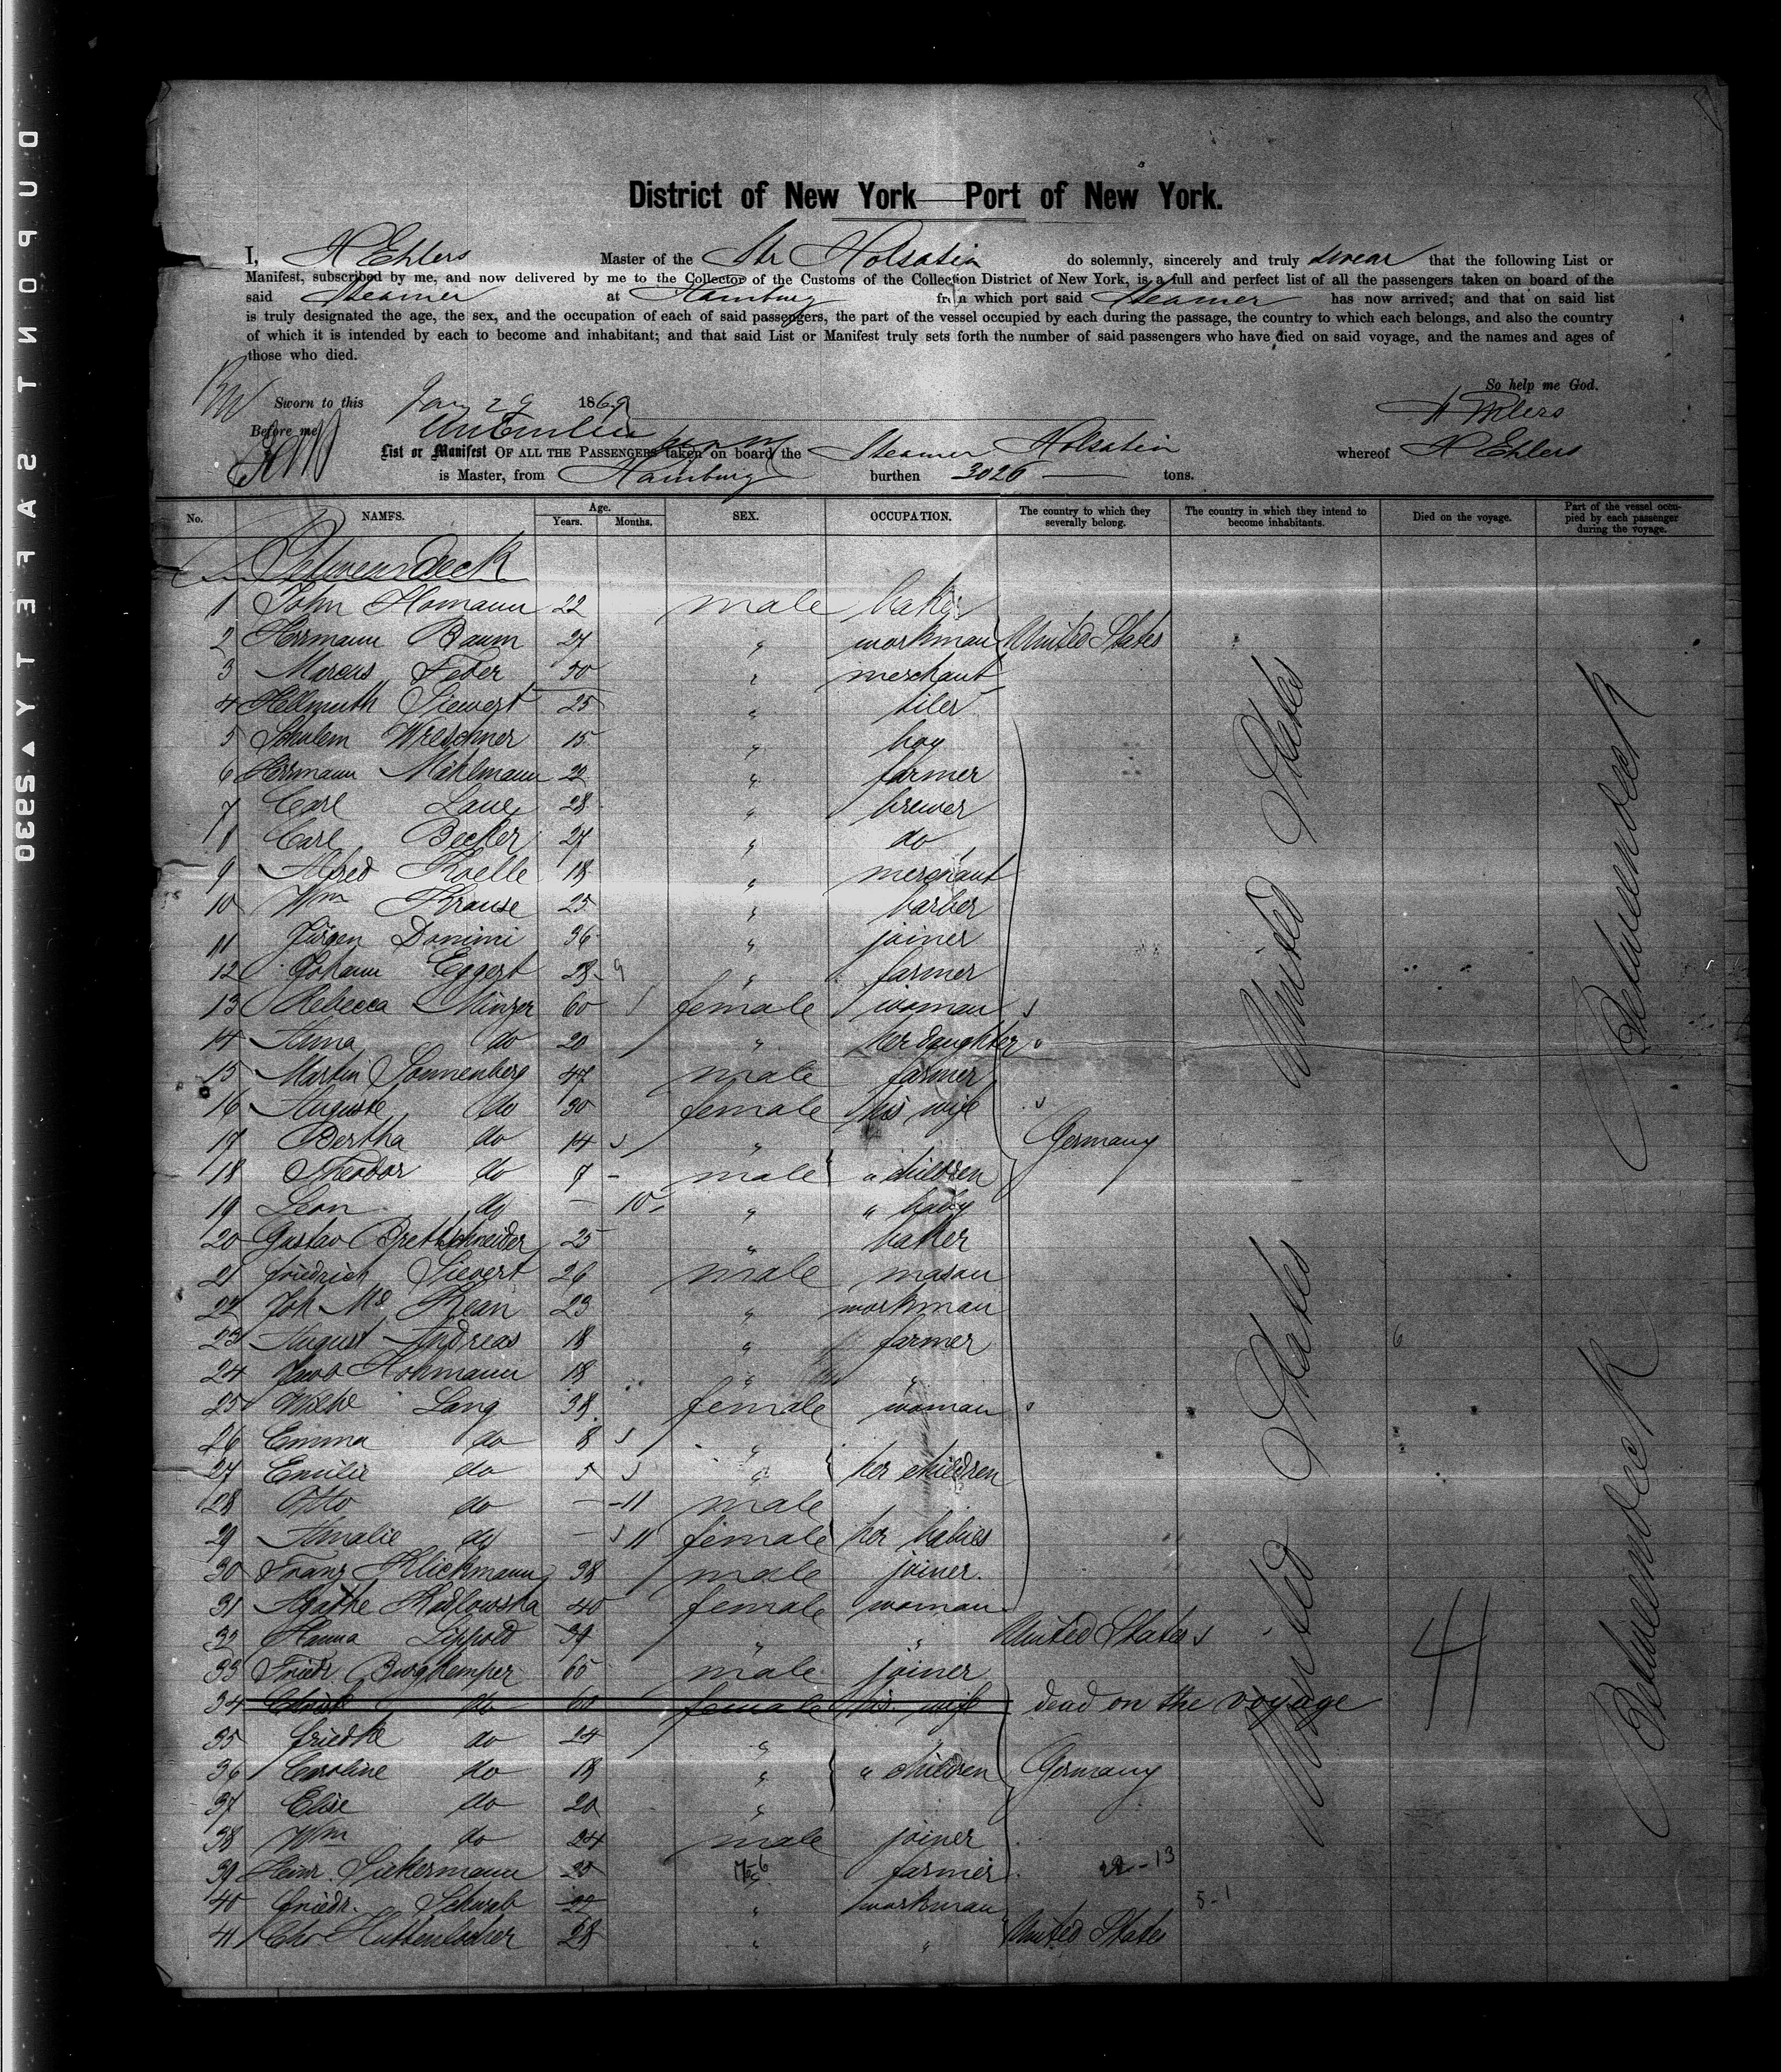 District of New York — Port of New York.
I, H Ehlers Master of the Str Holsatia do solemnly, sincerely and truly swear that the following List or
Manifest, subscribed by me, and now delivered by me to the Collector of the Customs of the Collection District of New York, is a full and perfect list of all the passengers taken on board of the
said Steamer at Hamburg from which port said Steamer has now arrived; and that on said list
is truly designated the age, the sex, and the occupation of each of said passengers, the part of the vessel occupied by each during the passage, the country to which each belongs, and also the country
of which it is intended by each to become and inhabitant; and that said List or Manifest truly sets forth the number of said passengers who have died on said voyage, and the names and ages of
those who died.
So help me God.
Sworn to this Jan 29 1869 H Ehlers
Before me
List or Manifest OF ALL THE PASSENGERS taken on board the Steamer Holsatia whereof H Ehlers
is Master, from Hamburg burthen 3026 tons.
No. NAMES. Age. Years. Months. SEX. OCCUPATION. The country to which they severally belong. The country in which they intend to become inhabitants. Died on the voyage. Part of the vessel occupied by each passenger during the voyage.
Betweendeck
1 John Homann 22 male baker
2 Herrmann Baum 27 " workman United States
3 Marcus Feder 30 " merchant
4 Hellmuth Siewert 25 " tiler
5 Schulem Wreschner 15 " boy
6 Herrmann Mahlmann 22 " farmer
7 Carl Laue 28 " brewer
8 Carl Becker 27 " do
9 Alfred Roelle 18 " merchant
10 Wm Krause 25 " barber
11 Jürgen Donimi 36 " joiner
12 Johann Eggert 28 " farmer
13 Rebecca Minzer 60 female woman
14 Anna do 20 " her daughter
15 Martin Sonnenberg 47 male farmer
16 Auguste do 30 female his wife
17 Bertha do 14 " Germany
18 Theodor do 7 male " children
19 Leon do — 10 " " baby
20 Gustav Brettschneider 25 " baker
21 Friedrich Sievert 26 male mason
22 Joh Mc Kean 23 workman
23 August Andreas 18 " farmer
24 Jacob Hohmann 18 " "
25 Wilhe Lang 38 female woman
26 Emma do 8 "
27 Emilie do 5 " her children
28 Otto do — 11 male
29 Amalie do — 11 female her babies
30 Franz Klickmann 38 male joiner
31 Agathe Kadlowska 40 female woman
32 Hanna Lippold 34 " " United States
33 Friedr Burgkemper 65 male joiner
34 do 60 female his wife dead on the voyage
35 Friedke do 24 "
36 Caroline do 18 " " children Germany
37 Elise do 20 "
38 Wm do 24 male joiner
39 Heinr. Siekermann 20 farmer
40 Friedr. Schwab 22 " workman
41 Chr Huttenlocher 28 " " United States
United States
United States
Betweendeck
Betweendeck
4
DUPONT SAFETY ▲ 0352930